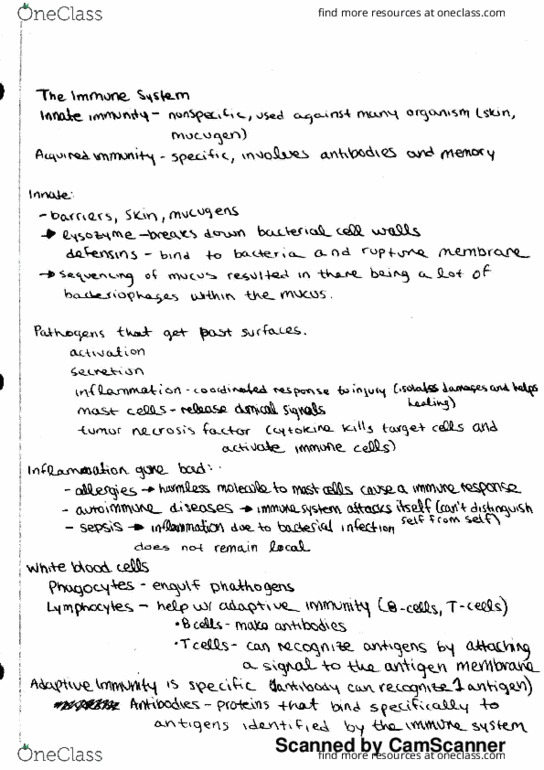 OneClass
find more resources at oneclass.com
The Immune System
Innate immunity - nonspecific, used against many organism (skin,
mucugen)
Acquired immunity - specific, involves antibodies and memory
Innate:
- barriers, skin, mucugens
→ lysozyme - breaks down bacterial cell walls
defensins - bind to bacteria and rupture membrane
→ sequencing of mucus resulted in there being a lot of
bacteriophages within the mucus.
Pathogens that get past surfaces.
activation
secretion
inflammation - coordinated response to injury (isolates damages and helps
healing)
mast cells - release chemical signals
tumor necrosis factor (cytokine kills target cells and
activate immune cells)
Inflammation gone bad:
- allergies → harmless molecule to most cells cause a immune response
- autoimmune diseases → immune system attacks itself (can't distinguish
self from self)
- sepsis → inflammation due to bacterial infection
does not remain local
White blood cells
Phagocytes - engulf phathogens
Lymphocytes - help w/ adaptive immunity (B-cells, T-cells)
• B cells - make antibodies
• T cells - can recognize antigens by attaching
a signal to the antigen membrane
Adaptive Immunity is specific (1 antibody can recognize 1 antigen)
Antibodies - proteins that bind specifically to
antigens identified by the immune system
Scanned by CamScanner
OneClass
find more resources at oneclass.com